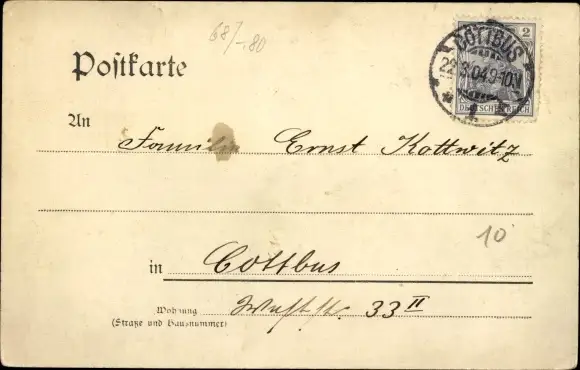 68/-.80
2
COTTBUS
22.3.04.9-10V
* 1 *
DEUTSCHES REICH
Postkarte
An
Familie Ernst Kottwitz
10
in Cottbus
Wohnung 33 II
(Straße und Hausnummer)